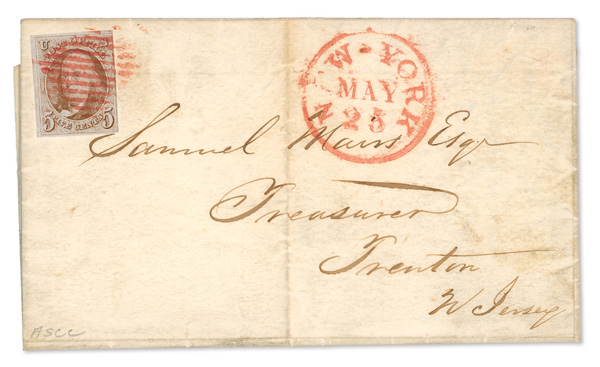 U S
POST OFFICE
5 5
FIVE CENTS
NEW-YORK
MAY
25
Samuel Mairs Esqr
Treasurer
Trenton
N Jersey
ASCC